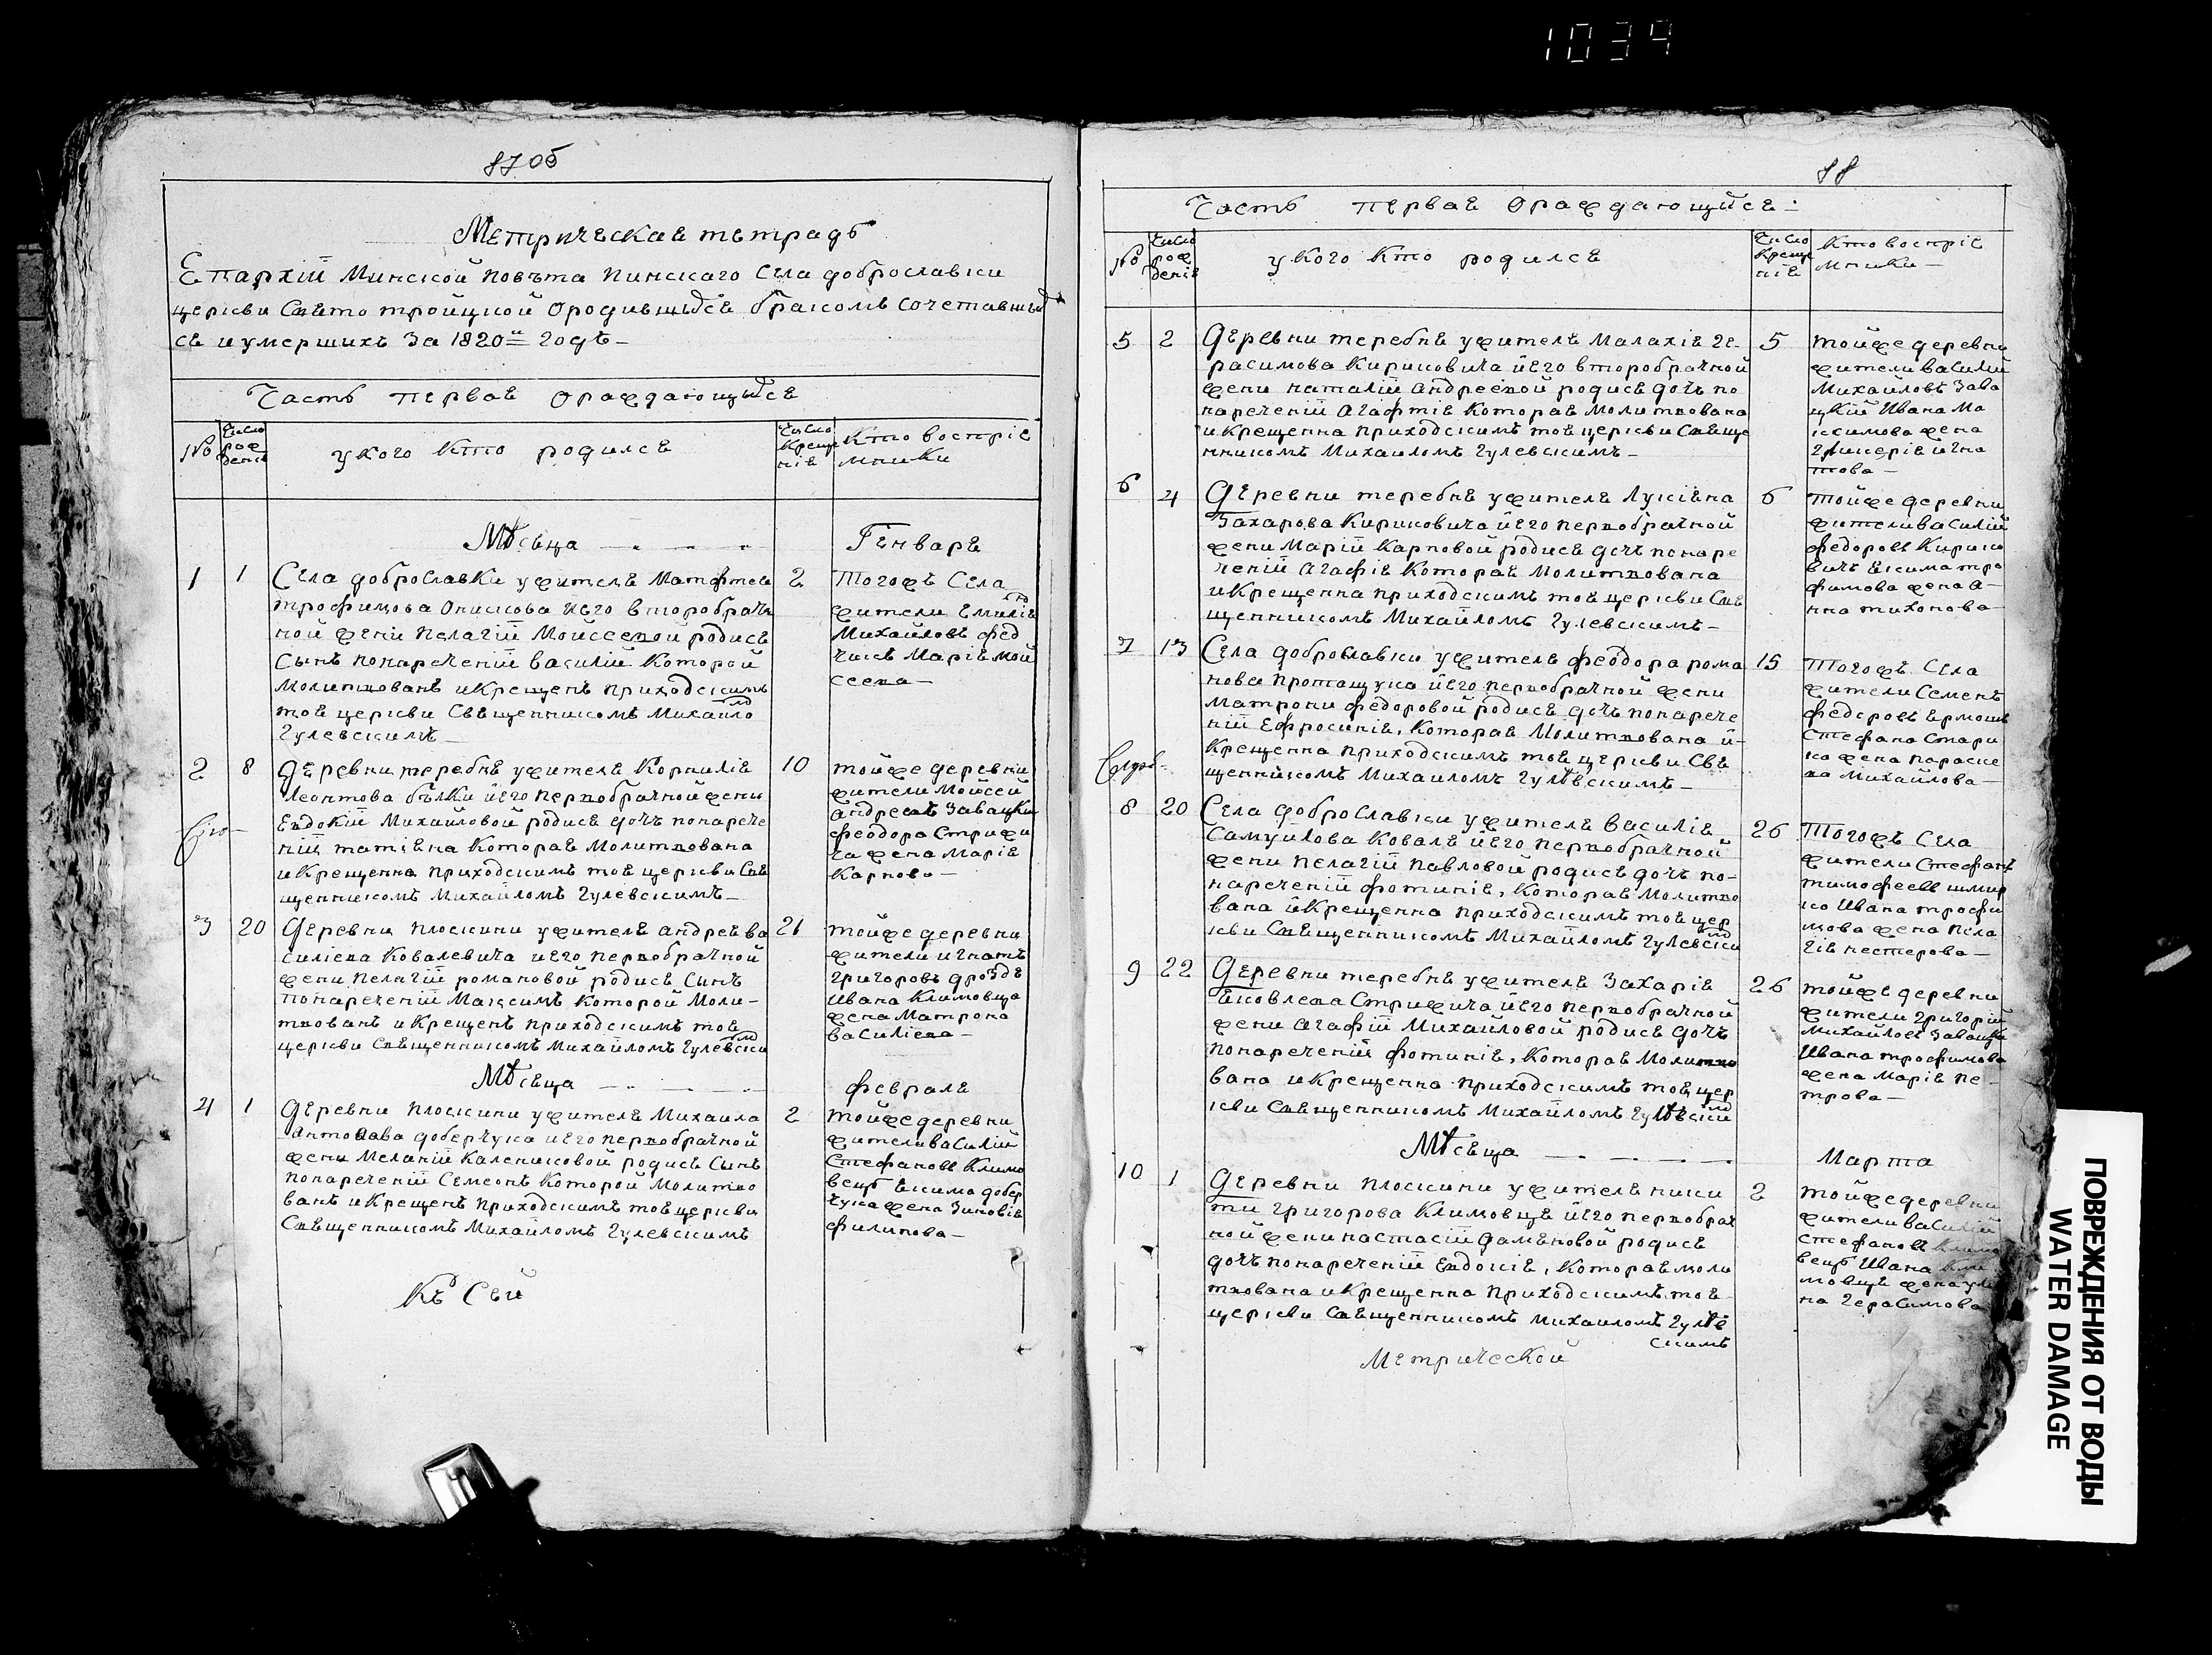 1034
87об
Метрическая тетрадь
Епархій Минской повѣта Пинскаго Села доброславки
церкви Свято тройцкой Ородившыхся бракомъ Сочетавшых
ся и умершихъ За 1820й годъ
Часть первая Ораждающыхся
№
Число рож денія
у кого кто родился
Число Креще нія
Кто воспріе
мники
Мѣсяца
Генваря
1 1 2
Села доброславки ужителя Матфтея
трофимова Онискова и его второбрачъ
ной жени Пелагій Мойссевой родися
Сынъ понареченій василій Которой
Молитвованъ и Крещенъ приходскимъ
тоя церкви Священникомъ Михаило
Гулевскимъ
Тогожъ Села
жители
Михайловъ фед
Марія Мой
сеева
2 8 10
Деревни теребня ужителя Корнилія
Леонтова бѣлки и его первобрачной жени
Евдокій Михаиловой родися дочъ понарече
ній татіяна Которая Молитвована
и Крещенна приходскимъ тоя церкви Свя
щенникомъ Михайломъ Гулевскимъ
тойже деревни
жители Мойсей
андреевъ Завацки
феодора Стрижи
ча жена Марія
Карпова
3 20 21
Деревни плоскини ужителя андрея ва
силіева Ковалевича и его первобрачной
жени Пелагій романовой родися Сынъ
понареченій Маѯимъ Которой Моли-
твованъ и Крещенъ приходскимъ тоя
церкви Священникомъ Михайломъ Гулевски
тойже деревни
жители игнатъ
григоровъ дроздъ
ивана Климовца
жена Матрона
василіева
Мѣсяца
февраля
4 1 2
Деревни плоскини ужителя Михаила
доберчука и его первобрачной
жени Меланій Калениковой родися Сынъ
понареченій Семеонъ Которой Молитво
ванъ и Крещенъ приходскимъ тоя церкви
Священникомъ Михайломъ Гулевскимъ
тойже деревни
жители василій
Стефановъ Климо
вецъ якима добер
чука жена Зиновія
филипова
Къ Сей
88
Часть первая Ораждающыйся
№
Число рож денія
у кого кто родился
Число Креще нія
Кто воспріе
мники
5 2 5
Деревни теребня ужителя Малахія Ге-
расимова Кириковича и его второбрачной
жени наталій андреевой родися дочъ по
нареченій Агафтія Которая Молитвована
и Крещенна приходскимъ тоя церкви Свяще
нникомъ Михаиломъ Гулевскимъ
тойже деревни
жители василий
Михайловъ Зава
цкій Ивана Ма
ксимова жена
Гликерія игна
това
6 4 6
Деревни теребня ужителя Лукіяна
Захарова Кириковича и его первобрачной
жени Марій Карповой родися дочъ понаре
ченій агафія Которая Молитвована
и Крещенна приходскимъ тоя церкви Свя
щенникомъ Михайломъ Гулевскимъ
тойже деревни
жители василій
федоровъ Кирико
вичъ якима тро
фимова жена а-
нна тихонова
7 13 15
Села доброславки ужителя феодора рома
нова Протащука и его первобрачной жени
Матрони федоровой родися дочъ понарече
ній Ефросинія, Которая Молитвована и-
Крещенна приходскимъ тоя церкви Свя
щенникомъ Михаиломъ Гулѣвскимъ
Тогожъ Села
жители Семенъ
федоровъ Ермоша
Стефана Стари
ко жена параске
ва Михайлова
8 20 26
Села доброславки ужителя василія
Самуилова Коваля и его первобрачной
жени Пелагій Павловой родися дочъ по-
нареченій фотинія, Которая Молитво
вана и Крещенна приходскимъ тоя цер
кви Священникомъ Михайломъ Гулевски
Тогожъ Села
жители Стефанъ
тимофеевъ шмир
ко Ивана трофи
мова жена Пела
гія нестерова
9 22 26
Деревни теребня ужителя Захарія
яковлева Стрижича и его первобрачной
жени агафій Михайловой родися дочъ
понареченій фотинія, Которая Молитво
вана и Крещенна приходскимъ тоя цер
кви Священникомъ Михайломъ Гулѣвски
тойже деревни
жители Григорій
Михайловъ Завацки
Ивана трофимова
жена Марія Пе
трова
Мѣсяца
Марта
10 1 2
Деревни плоскини ужителя ники
ти григорова Климовца и его первобрач
ной жени настасій дамяновой родися
дочъ понареченій Евдокія, Которая моли
твована и Крещенна приходскимъ тоя
церкви Священникомъ Михаиломъ Гулѣв
скимъ
тойже деревни
жители василій
Стефановъ Климо
вецъ Ивана Кли
мовца жена
на Герасимова
Метрической
ПОВРЕЖДЕНИЯ ОТ ВОДЫ
WATER DAMAGE